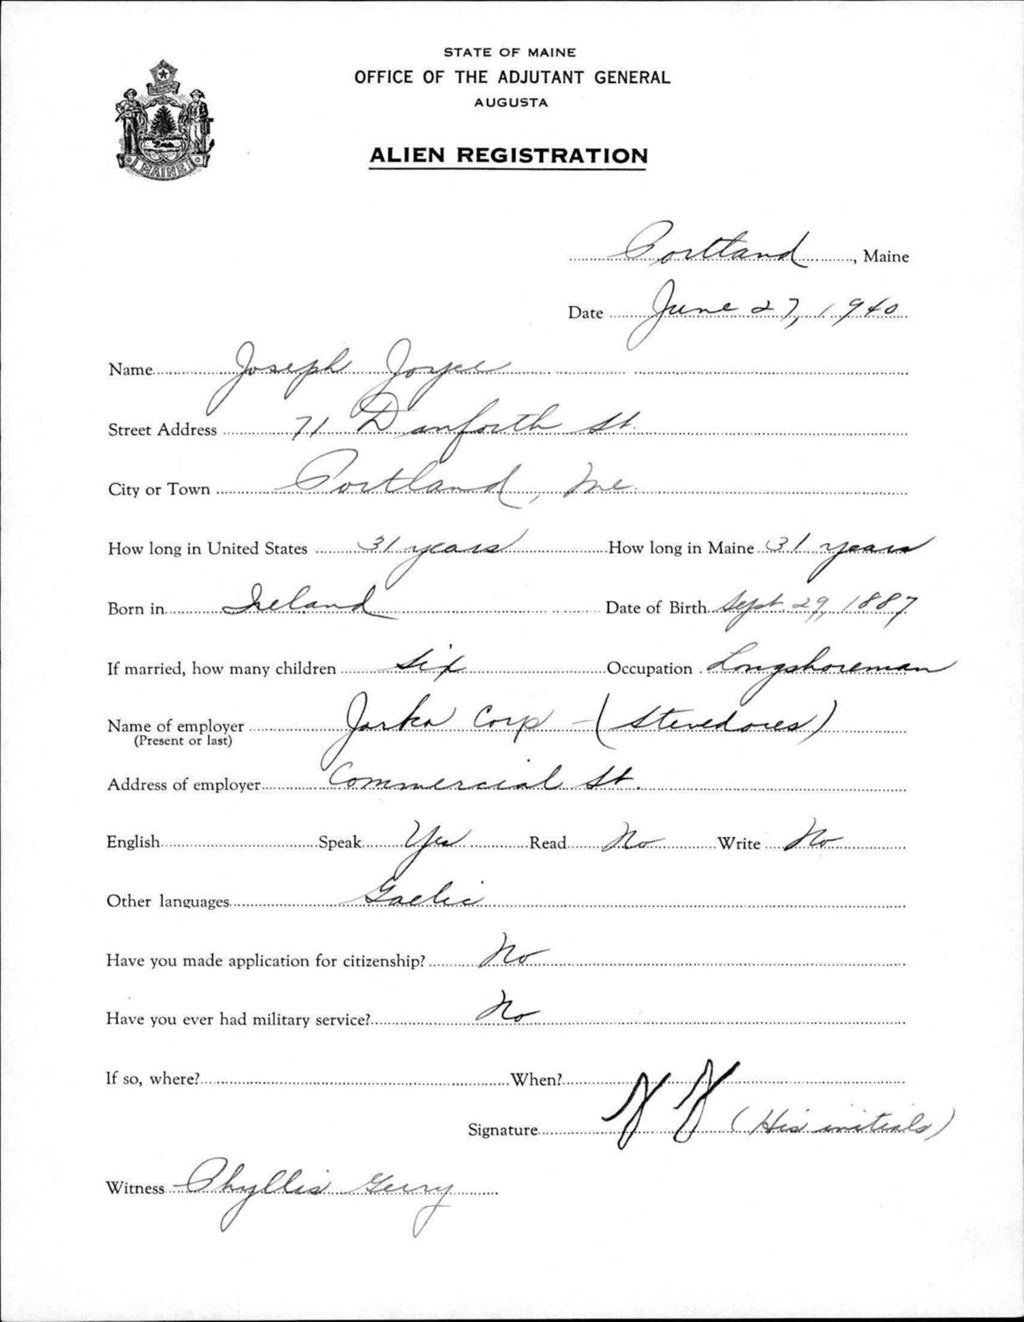 STATE OF MAINE
OFFICE OF THE ADJUTANT GENERAL
AUGUSTA
ALIEN REGISTRATION
MAINE
Portland, Maine
Date June 27, 1940
Name Joseph Joyce
Street Address 71 Danforth St.
City or Town Portland, Me.
How long in United States 31 years How long in Maine 31 years
Born in Ireland Date of Birth Sept. 29, 1887
If married, how many children Six Occupation Longshoreman
Name of employer Jarka Corp - (Stevedores)
(Present or last)
Address of employer Commercial St.
English Speak Yes Read No Write No
Other languages Gaelic
Have you made application for citizenship? No
Have you ever had military service? No
If so, where? When?
Signature J J (His initials)
Witness Phyllis Gerry